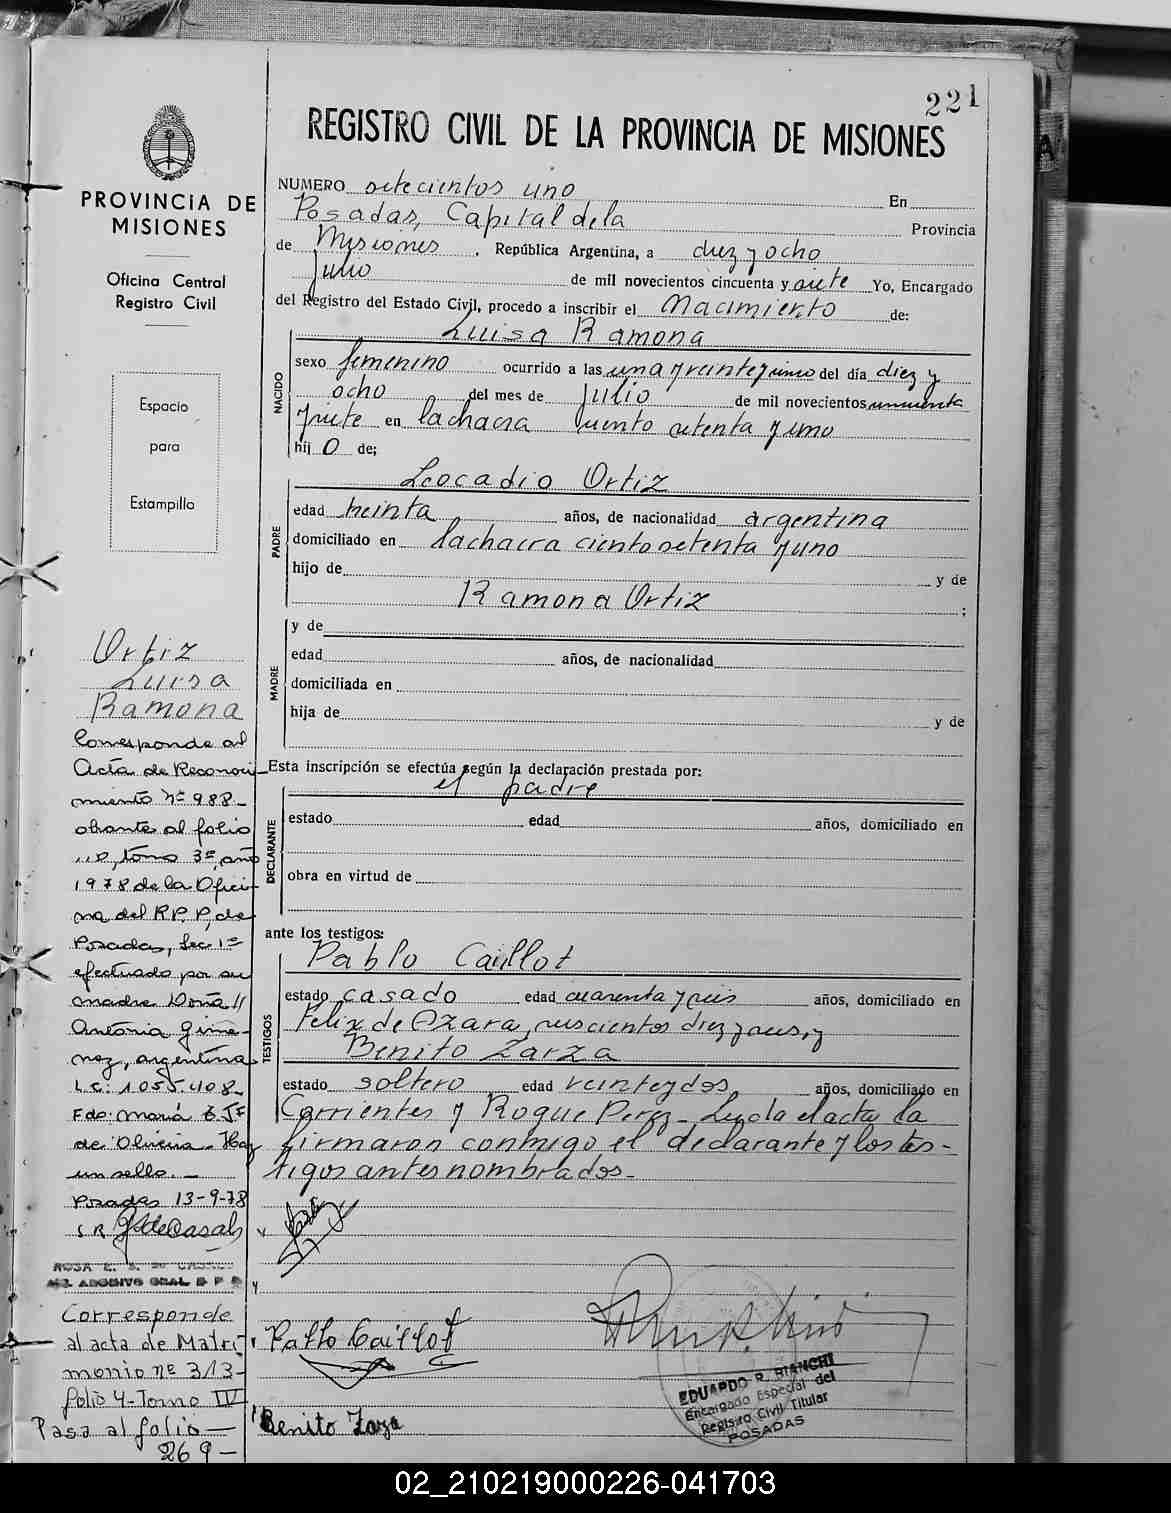 221
REGISTRO CIVIL DE LA PROVINCIA DE MISIONES
PROVINCIA DE
MISIONES
Oficina Central
Registro Civil
Espacio
para
Estampilla
NUMERO setecientos uno En
Posadas, Capital de la Provincia
de Misiones, República Argentina, a diez y ocho
Julio de mil novecientos cincuenta y siete Yo, Encargado
del Registro del Estado Civil, procedo a inscribir el Nacimiento de:
Luisa Ramona
NACIDO
sexo femenino ocurrido a las una y veinte y cinco del día diez y
ocho del mes de Julio de mil novecientos cincuenta
y siete en la chacra ciento setenta y uno
hij o de;
Leocadio Ortiz
PADRE
edad treinta años, de nacionalidad argentina
domiciliado en la chacra ciento setenta y uno
hijo de y de
Ramona Ortiz ;
MADRE
y de
edad años, de nacionalidad
domiciliada en
hija de y de
Esta inscripción se efectúa según la declaración prestada por:
el padre
DECLARANTE
estado edad años, domiciliado en
obra en virtud de
ante los testigos:
Pablo Caillot
TESTIGOS
estado casado edad cuarenta y seis años, domiciliado en
Felix de Azara, seiscientos diez y seis, y
Benito Zarza
estado soltero edad veinte y dos años, domiciliado en
Corrientes y Roque Perez. Leida el acta la
firmaron conmigo el declarante y los tes-
tigos antes nombrados-
Pablo Caillot
Benito Zarza
EDUARDO R. BIANCHI
Encargado Especial del
Registro Civil Titular
POSADAS
Ortiz
Luisa
Ramona
Corresponde al
Acta de Reconoci-
miento Nº 988-
obrante al folio
110, tomo 3º, año
1978 de la Ofici-
na del R.P.P, de
Posadas, Sec. 1ª
efectuado por su
madre Doña //
Antonia Gime-
nez, argentina
L.C: 1.055.408-
Fdo: María E. J. F
de Oliveira. Hay
un sello.-
Posadas 13-9-78
ROSA E. S. DE CASALS
Corresponde
al acta de Matri-
monio nº 313-
folio 4-Tomo IV
Pasa al folio-
269-
02_210219000226-041703